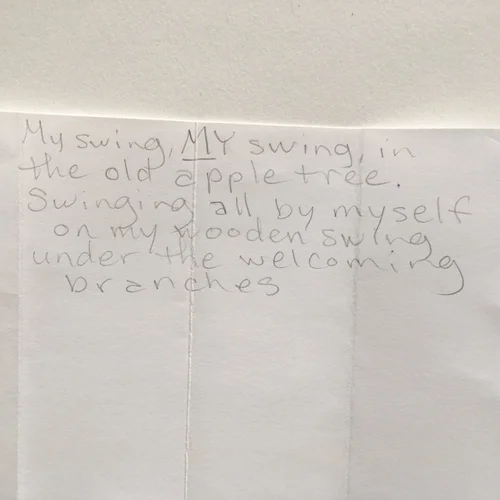 My swing, MY swing, in
the old apple tree.
Swinging all by myself
on my wooden swing
under the welcoming
branches